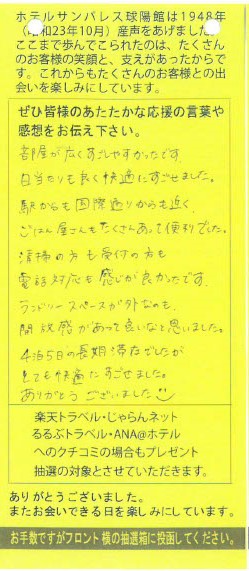 ホテルサンパレス球陽館は1948年
（昭和23年10月）産声をあげました。
ここまで歩んでこられたのは、たくさん
のお客様の笑顔と、支えがあったからで
す。これからもたくさんのお客様との出
会いを楽しみにしています。
ぜひ皆様のあたたかな応援の言葉や
感想をお伝え下さい。
部屋が広くすごしやすかったです。
日当たりも良く快適にすごせました。
駅からも国際通りからも近く、
ごはん屋さんもたくさんあって便利でした。
清掃の方も受付の方も
電話対応も感じが良かったです。
ランドリースペースが外なのも、
開放感があって良いなと思いました。
4泊5日の長期滞在でしたが
とても快適にすごせました。
ありがとうございました
楽天トラベル・じゃらんネット
るるぶトラベル・ANA@ホテル
へのクチコミの場合もプレゼント
抽選の対象とさせていただきます。
ありがとうございました。
またお会いできる日を楽しみにしています。
お手数ですがフロント横の抽選箱に投函してください。